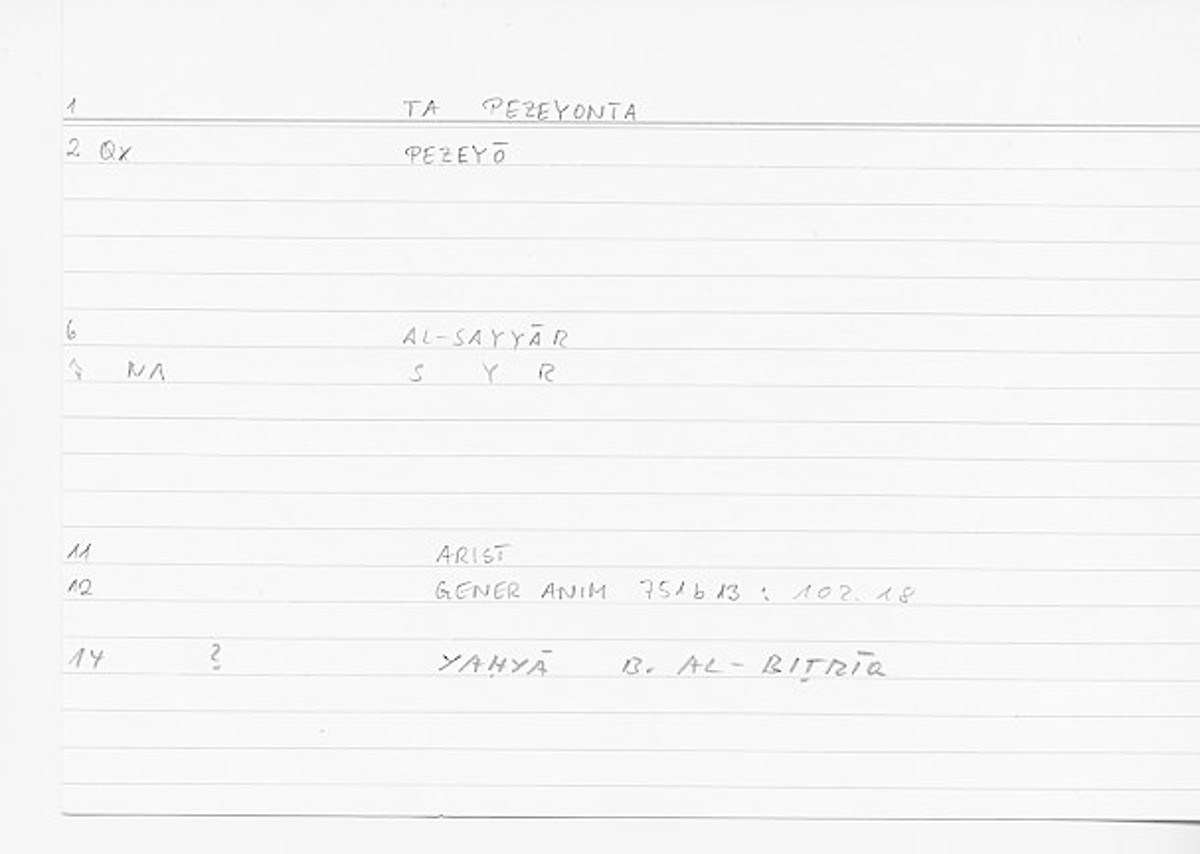 1 TA PEZEYONTA
2 Qx PEZEYŌ
6 AL-SAYYĀR
NA S Y R
11 ARIST
12 GENER ANIM 751b13 : 102.18
14 ? YAḤYĀ B. AL-BIṬRĪQ